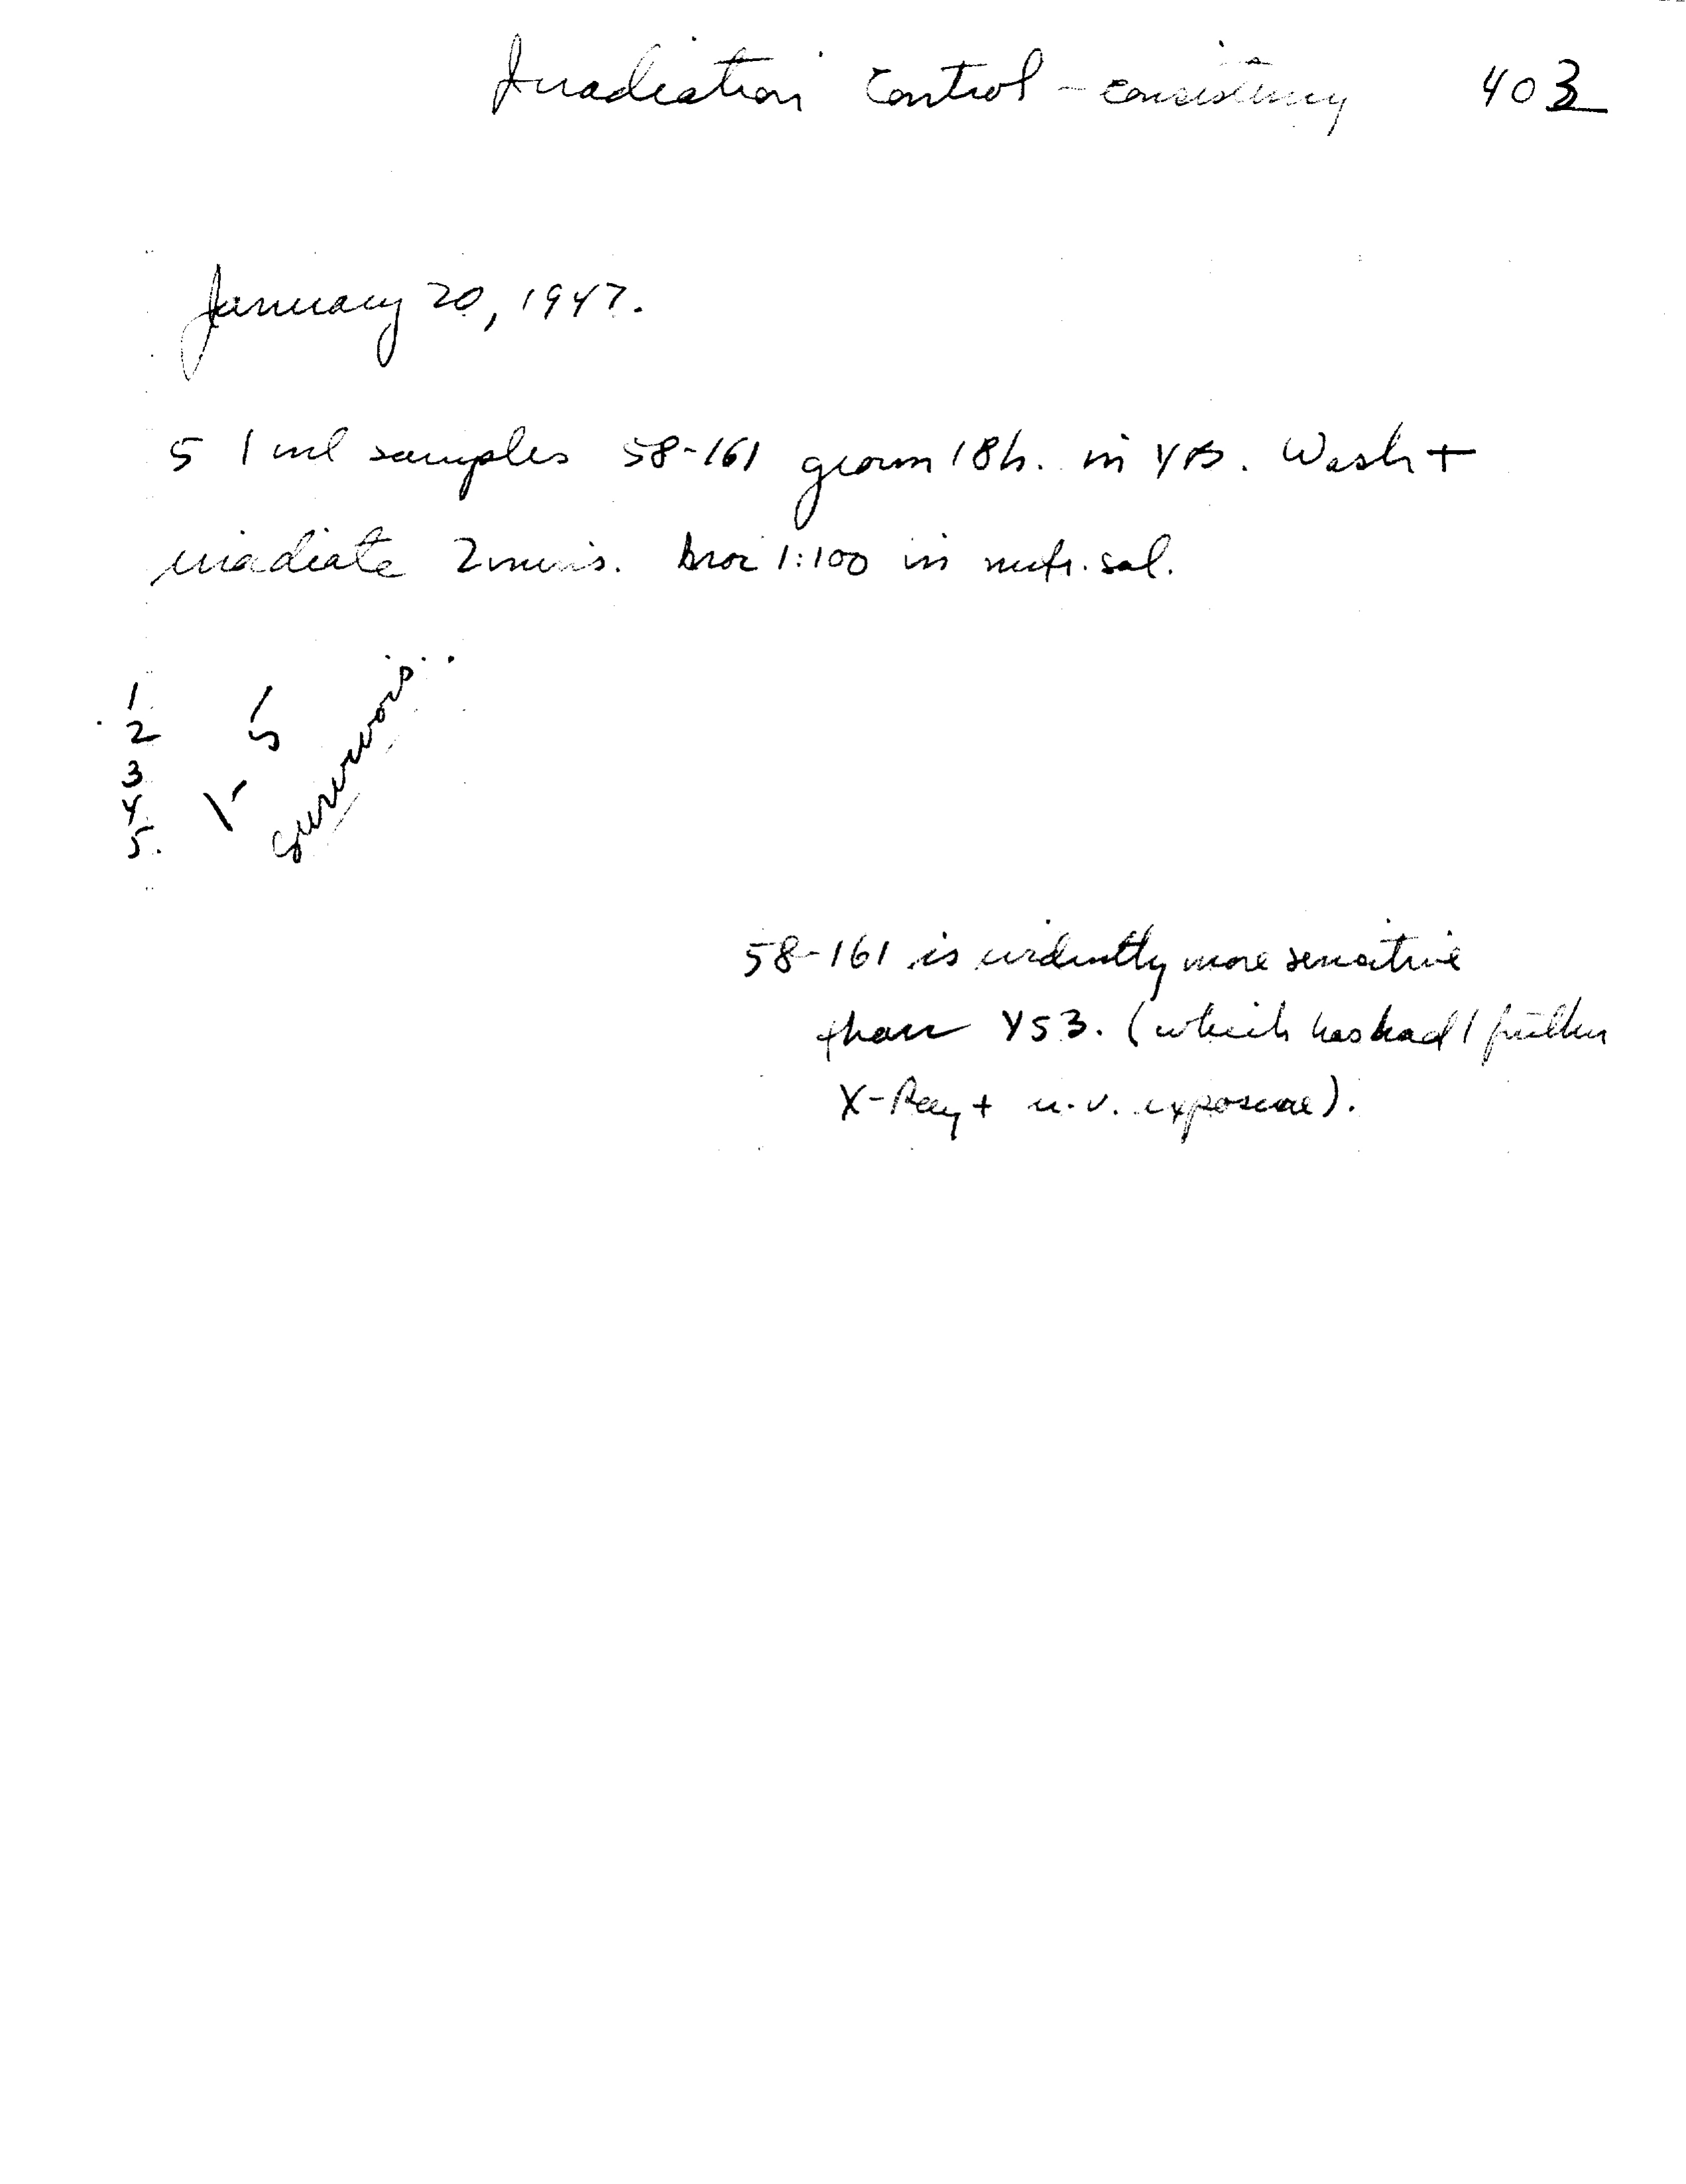 Irradiation Control - consistency 403
January 20, 1947.
5 1 ml samples 58-161 grown 18h. in YB. Wash +
irradiate 2 mins. 1:100 in nutr. sal.
1
2
3
4
5.
1-5
survivors.
58-161 is evidently more sensitive
than Y53. (which has had 1 further
X-Ray + u.v. exposure).